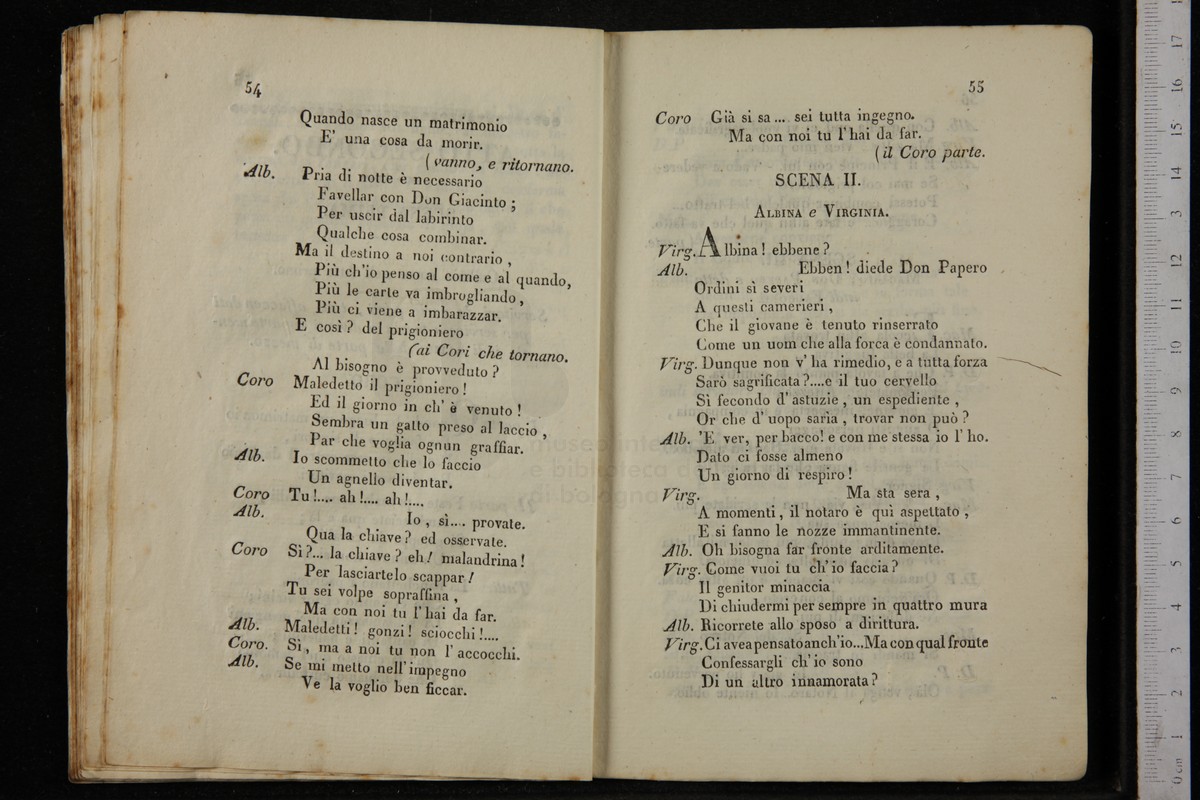 54
Quando nasce un matrimonio
E' una cosa da morir.
(vanno, e ritornano.
Alb. Pria di notte è necessario
Favellar con Don Giacinto ;
Per uscir dal labirinto
Qualche cosa combinar.
Ma il destino a noi contrario ,
Più ch'io penso al come e al quando,
Più le carte va imbrogliando ,
Più ci viene a imbarazzar.
E così ? del prigioniero
(ai Cori che tornano.
Al bisogno è provveduto ?
Coro Maledetto il prigioniero !
Ed il giorno in ch' è venuto !
Sembra un gatto preso al laccio ,
Par che voglia ognun graffiar.
Alb. Io scommetto che lo faccio
Un agnello diventar.
Coro Tu !.... ah !.... ah !....
Alb. Io , sì.... provate.
Qua la chiave ? ed osservate.
Coro Sì ?... la chiave ? eh ! malandrina !
Per lasciartelo scappar !
Tu sei volpe sopraffina ,
Ma con noi tu l' hai da far.
Alb. Maledetti ! gonzi ! sciocchi !....
Coro. Sì , ma a noi tu non l' accocchi.
Alb. Se mi metto nell' impegno
Ve la voglio ben ficcar.
55
Coro Già si sa .... sei tutta ingegno.
Ma con noi tu l' hai da far.
(il Coro parte.
SCENA II.
ALBINA e VIRGINIA.
Virg. Albina ! ebbene ?
Alb. Ebben ! diede Don Papero
Ordini sì severi
A questi camerieri ,
Che il giovane è tenuto rinserrato
Come un uom che alla forca è condannato.
Virg. Dunque non v' ha rimedio, e a tutta forza
Sarò sagrificata ?....e il tuo cervello
Sì fecondo d' astuzie , un espediente ,
Or che d' uopo sarìa , trovar non può ?
Alb. 'E ver, per bacco! e con me stessa io l' ho.
Dato ci fosse almeno
Un giorno di respiro !
Virg. Ma sta sera ,
A momenti , il notaro è quì aspettato ,
E si fanno le nozze immantinente.
Alb. Oh bisogna far fronte arditamente.
Virg. Come vuoi tu ch' io faccia ?
Il genitor minaccia
Di chiudermi per sempre in quattro mura
Alb. Ricorrete allo sposo a dirittura.
Virg. Ci avea pensato anch' io...Ma con qual fronte
Confessargli ch' io sono
Di un altro innamorata ?